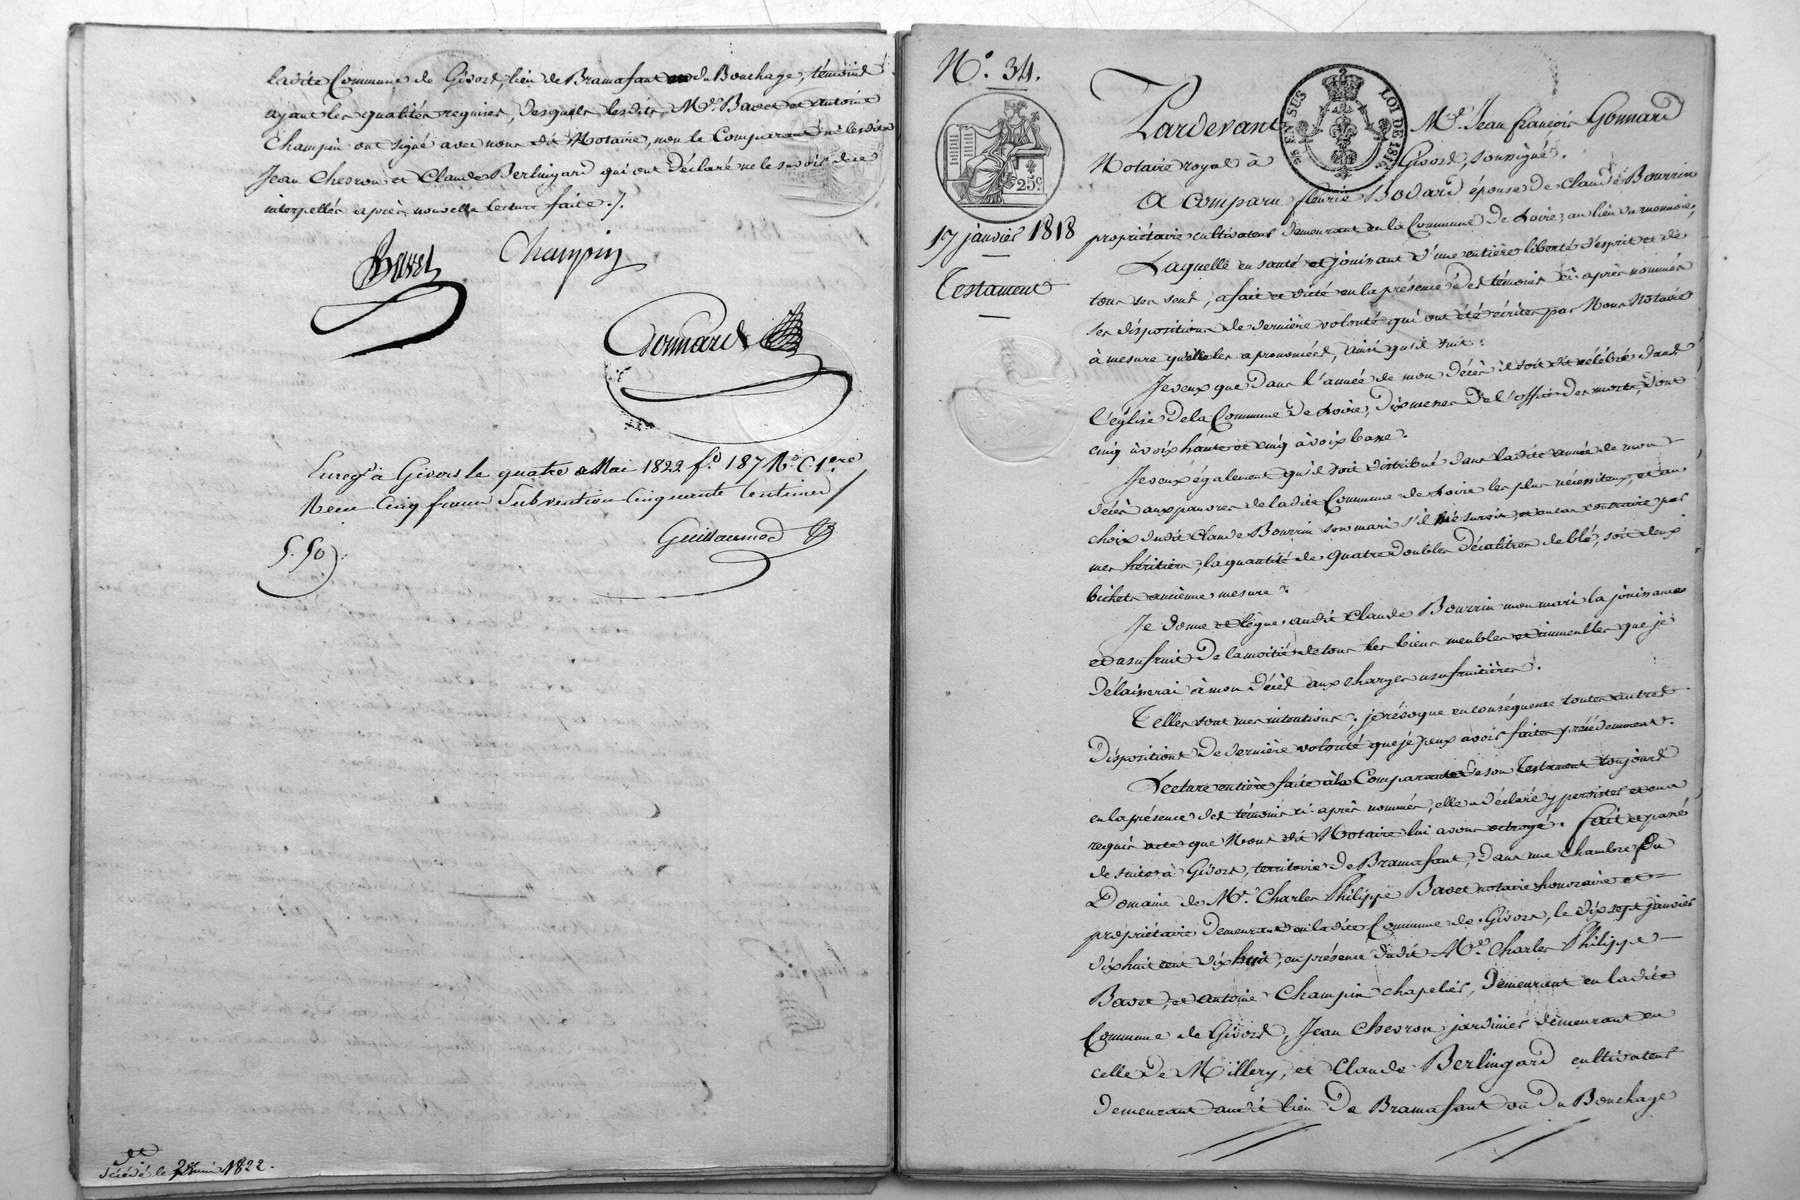 ladite Commune de Givors, lieu de Bramafant ou du Bouchage, témoins
ayant les qualités requises, desquels lesdits Mrs Bavet et antoine
Champin ont signé avec nous dit Notaire, non le Comparante ni lesdits
Jean Chevron et Claude Berlingard qui ont déclaré ne le savoir de ce
interpellés après nouvelle lecture faite ./.
Bavet
Champin
Gonnard
Enregé à Givors le quatre Mai 1822 fo 187 Ro C 1ere
Reçu Cinq francs Subvention Cinquante Centimes
5.50
Guillaumod
décédé le 1822.
No. 34.
25c
17 janvier 1818
Testament
Pardevant Me. Jean françois Gonnard
EN SUS LOI DE 1816
Notaire royal à Givors, soussigné.
A Comparu fleurie Bodard épouse de Claude Bourrin
propriétaire cultivateur demeurant en la Commune de Loire, au lieu du monnoie,
Laquelle en santé et jouissant d'une entière liberté d'esprit et de
tous ses sens, a fait et dicté en la présence des témoins ci-après nommés
ses dispositions de dernière volonté qui ont été écrites par Nous Notaire
à mesure qu'elle les a prononcées, ainsi qu'il suit :
Je veux que dans l'année de mon décès il soit dit et célébré dans
l'église de la Commune de Loire, dix messes de l'office des morts, dont
cinq à voix haute et cinq à voix basse.
Je veux également qu'il soit distribué dans ladite année de mon
décès aux pauvres de ladite Commune de Loire les plus nécessiteux, et au
choix dudit Claude Bourrin son mari s'il me survit, et au cas contraire par
mes héritiers, la quantité de quatre doubles décalitres de blé, soit deux
bichets ancienne mesure.
Je donne et lègue audit Claude Bourrin mon mari la jouissance
et usufruit de la moitié de tous les biens meubles et immeubles que je
délaisserai à mon décès aux charges usufruitières.
Telles sont mes intentions ; je révoque en conséquence toutes autres
dispositions de dernière volonté que je peux avoir faites précédemment.
Lecture entière faite à la Comparante de son Testament toujours
en la présence des témoins ci-après nommés, elle a déclaré y persister et en a
requis acte que Nous dit Notaire lui avons octroyé. fait et passé
de suite à Givors, territoire de Bramafant, dans une chambre du
Domaine de Mr. Charles Philippe Bavet notaire honoraire et
propriétaire demeurant en ladite Commune de Givors, le dix sept janvier
dix huit cent dix huit, en présence dudit Mr. Charles Philippe
Bavet, et antoine Champin chapelier, demeurant en ladite
Commune de Givors, Jean Chevron jardinier demeurant en
celle de Millery, et Claude Berlingard cultivateur
demeurant audit lieu de Bramafant ou du Bouchage